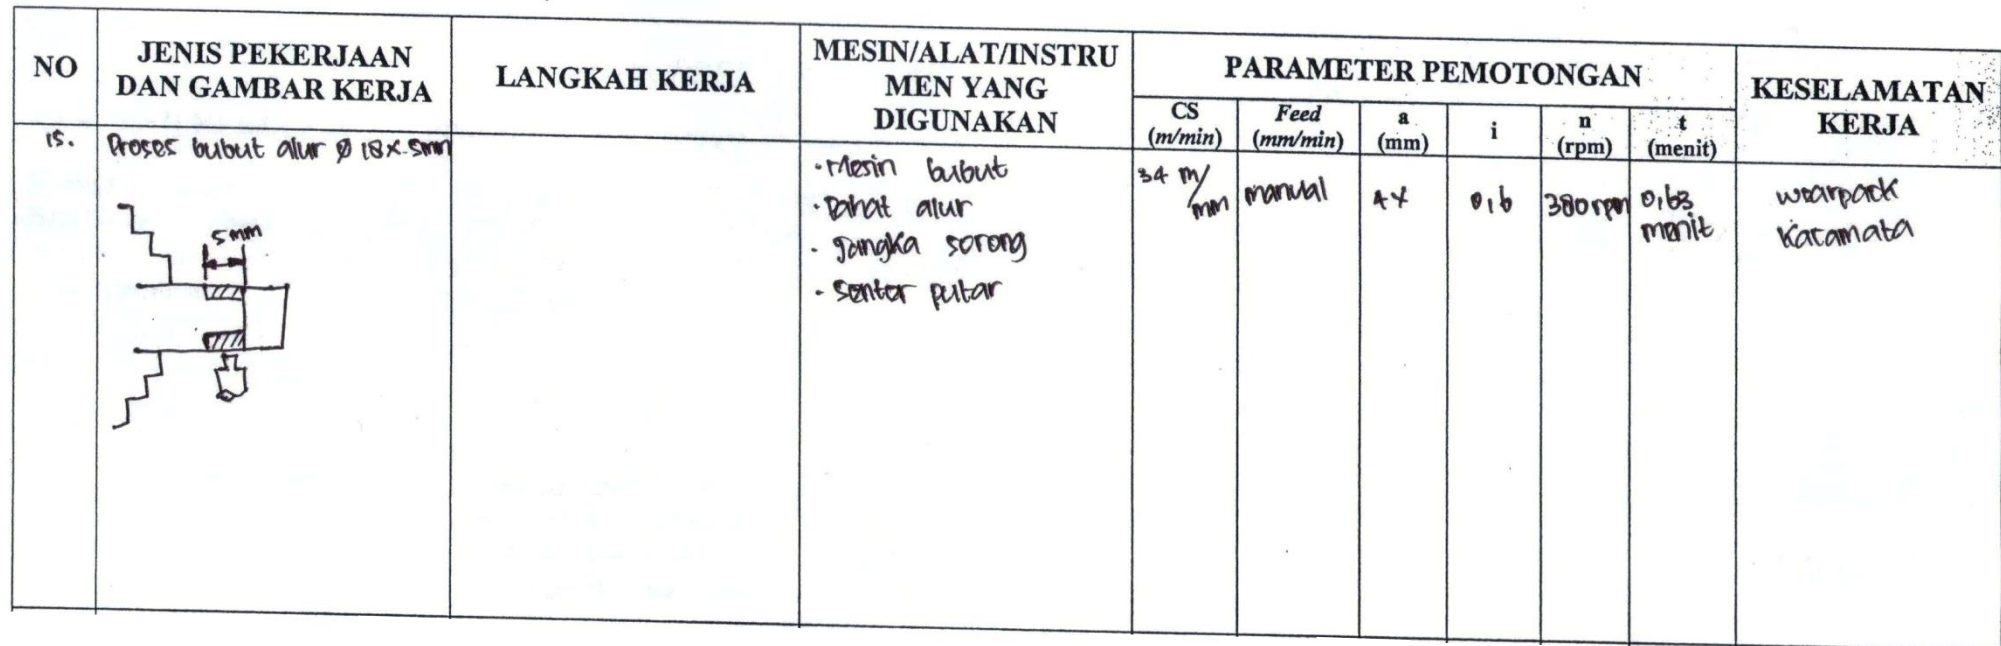 NO
JENIS PEKERJAAN
DAN GAMBAR KERJA
LANGKAH KERJA
MESIN/ALAT/INSTRU
MEN YANG
DIGUNAKAN
PARAMETER PEMOTONGAN
CS
(m/min)
Feed
(mm/min)
a
(mm)
i
n
(rpm)
t
(menit)
KESELAMATAN
KERJA
15.
Proses bubut alur Ø 18 x 5mm
5 mm
• Mesin bubut
• Pahat alur
- Jangka sorong
- Senter putar
34 m/
mm
manual
4x
0,6
380 rpm
0,63
menit
wearpack
Kacamata